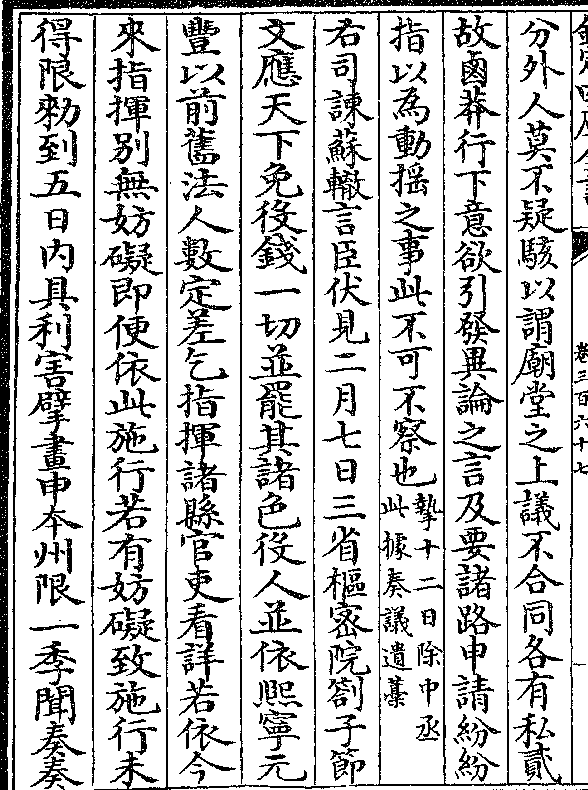 卷三百六十七
分外人莫不疑駭以謂廟堂之上議不合同各有私貳
故鹵莽行下意欲引發異論之言及要諸路申請紛紛
指以為動揺之事此不可不察也摯十二日除中丞
此據奏議遺藁
右司諫蘇轍言臣伏見二月七日三省樞宻院劄子節
文應天下免役錢一切並罷其諸色役人並依熈寧元
豐以前舊法人數定差乞指揮諸縣官吏看詳若依今
來指揮別無妨礙即便依此施行若有妨礙致施行未
得限勑到五日內具利害擘畫申本州限一季聞奏奏